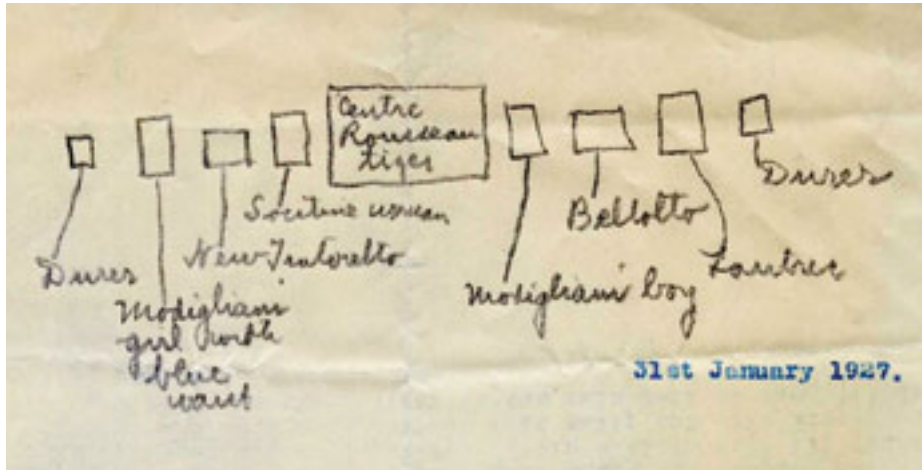 Centre
Rousseau
tiger
Durer
Modigliani
girl with
blue
waist
New Tintoretto
Soutine woman
Modigliani boy
Bellotto
Lautrec
Durer
31st January 1927.